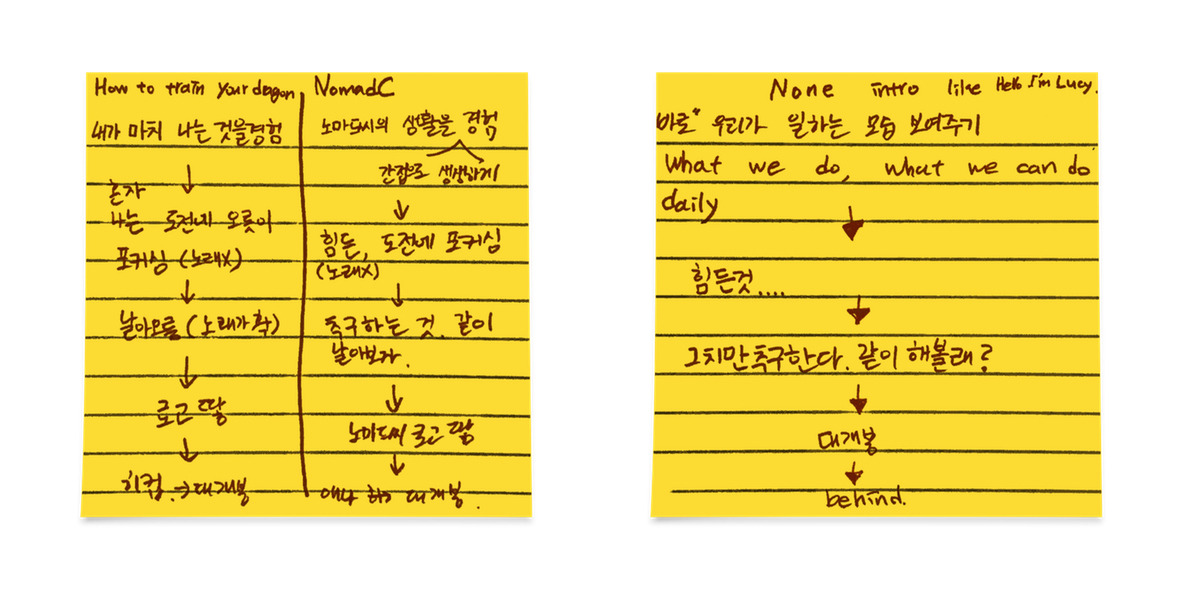 How to train your dragon
내가 마치 나는 것을 경험
↓
혼자
나는 도전에 오롯이
포커싱 (노래X)
↓
날아오름 (노래가 확)
↓
로고 땋
↓
히컵 → 대개봉
NomadC
노마드씨의 생활을 경험
간접으로 생생하게
↓
힘든, 도전에 포커싱
(노래X)
↓
추구하는 것. 같이
날아보자.
↓
노마드씨 로고 땋
↓
하고 대개봉.
None intro like Hello I'm Lucy.
바로" 우리가 일하는 모습 보여주기
What we do, what we can do
daily
↓
힘든것....
↓
그치만 추구한다. 같이 해볼래?
↓
대개봉
↓
behind.